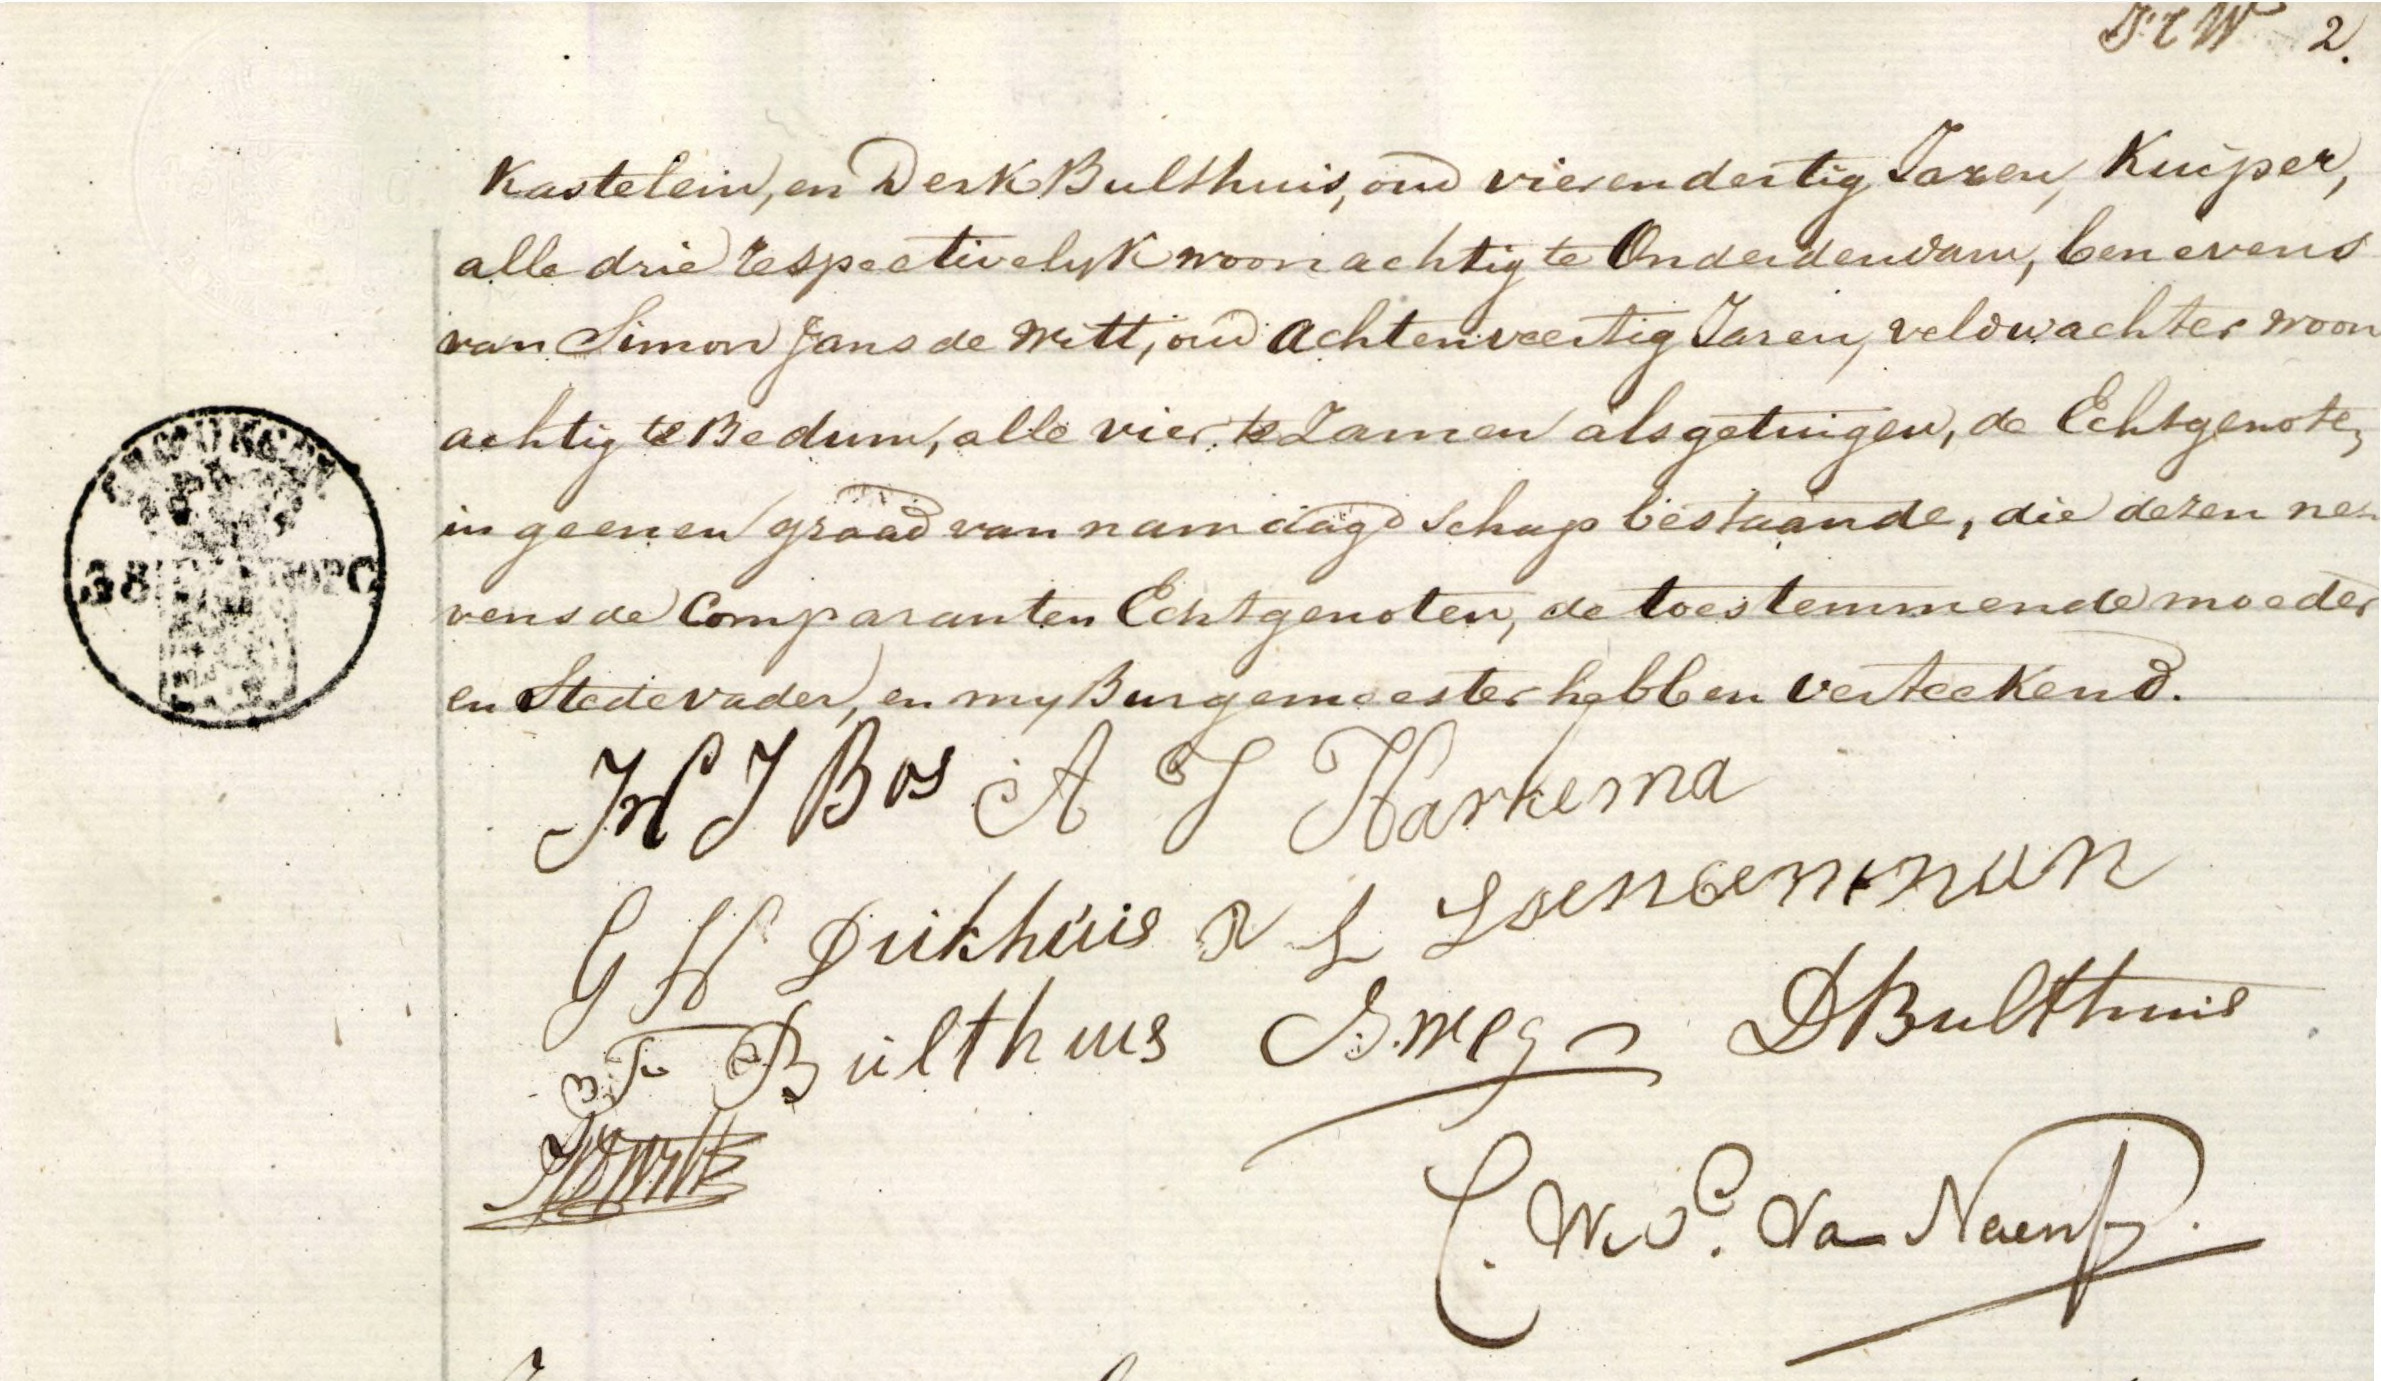 2.
Kastelein, en Derk Bulthuis, oud vierendertig Jaren, Kuiper,
alle drie respectivelyk woonachtig te Onderdendam, benevens
van Simon Jans de Witt, oud Achtenveertig Jaren, veldwachter woon
achtig te Bedum, alle vier te Zamen als getuigen, de Echtgenote,
in geenen graad van namaagdschap bestaande, die dezen ne-
vens de Comparanten Echtgenoten, de toestemmende moeder
en Stedevader, en my Burgemeester hebben verteekend.
38
H J Bos A J Harkema
G H Dirkhuis L
T Bulthuis D Bulthuis
C. W. Van